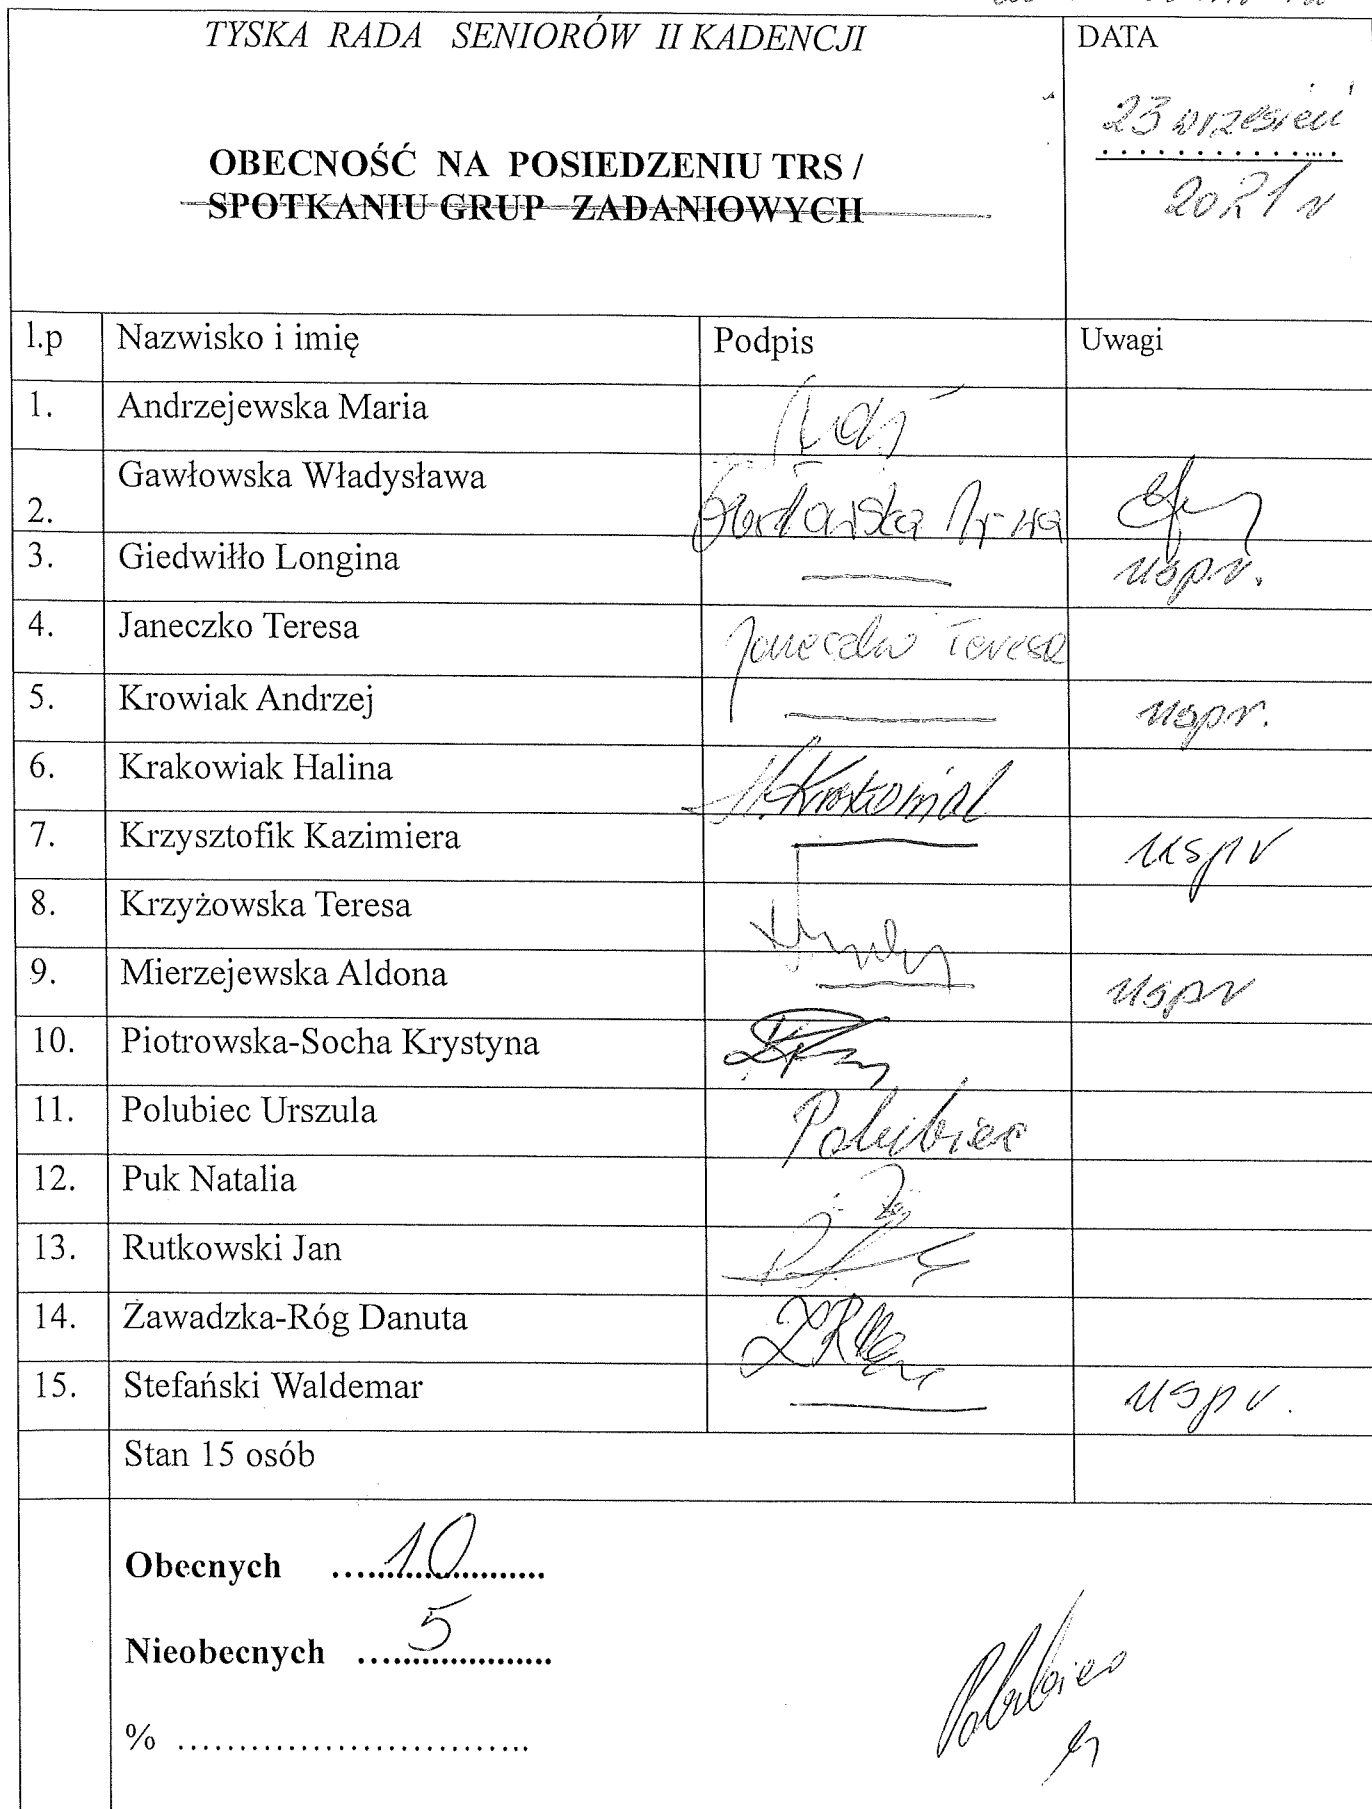 TYSKA RADA SENIORÓW II KADENCJI
DATA
23 wrzesień
2021 r
OBECNOŚĆ NA POSIEDZENIU TRS /
SPOTKANIU GRUP ZADANIOWYCH
l.p Nazwisko i imię Podpis Uwagi
1. Andrzejewska Maria
2. Gawłowska Władysława Gawłowska
3. Giedwiłło Longina uspr.
4. Janeczko Teresa Janeczko Teresa
5. Krowiak Andrzej uspr.
6. Krakowiak Halina H. Krakowiak
7. Krzysztofik Kazimiera uspr
8. Krzyżowska Teresa
9. Mierzejewska Aldona uspr
10. Piotrowska-Socha Krystyna
11. Polubiec Urszula Polubiec
12. Puk Natalia
13. Rutkowski Jan
14. Zawadzka-Róg Danuta
15. Stefański Waldemar uspr.
Stan 15 osób
Obecnych .....10..........
Nieobecnych .....5..........
% ................................
Polubiec